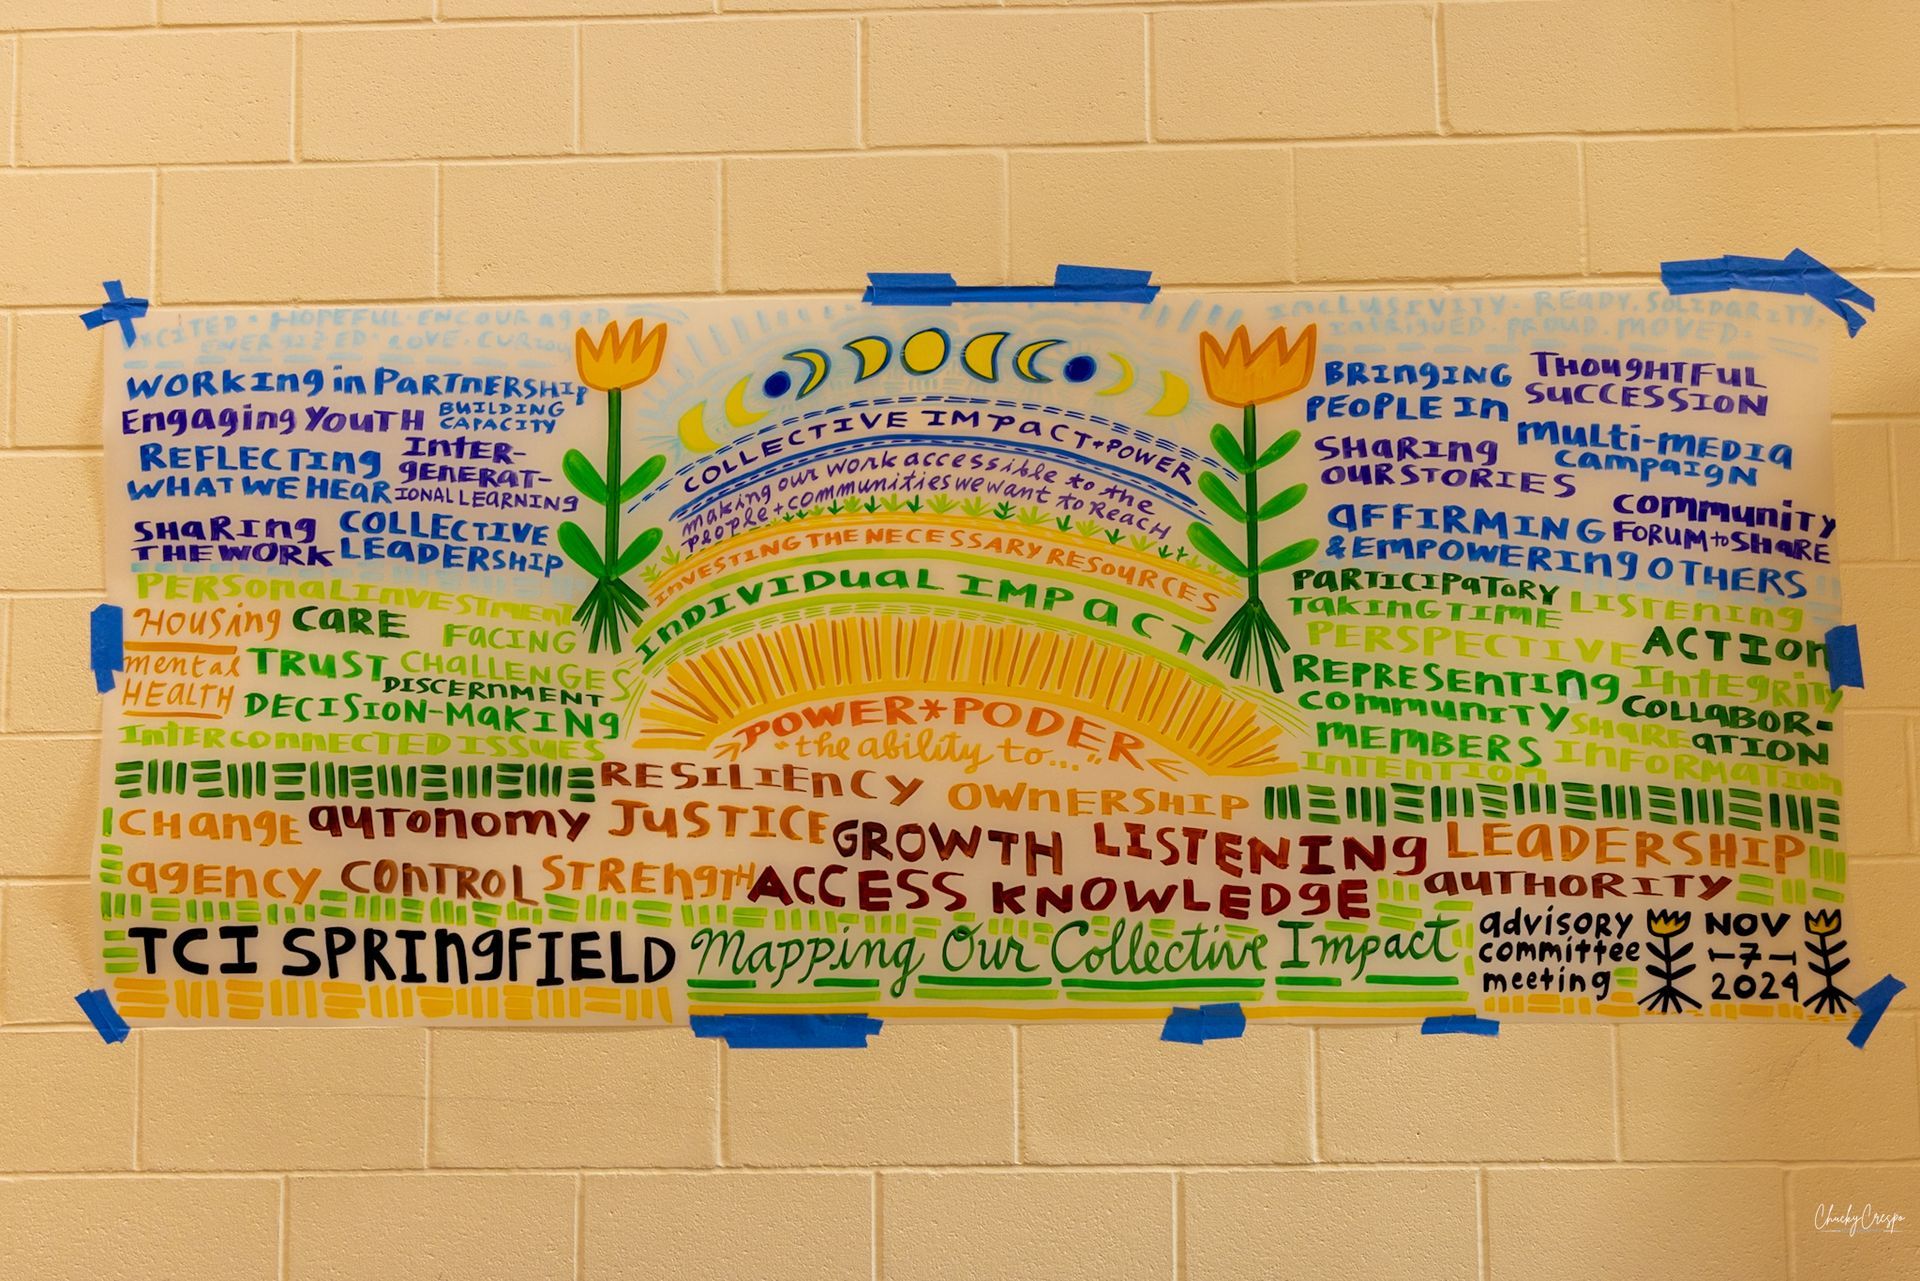 EXCITED · HOPEFUL · ENCOURAGED
ENERGIZED · LOVE · CURIOUS
INCLUSIVITY · READY · SOLIDARITY ·
INTRIGUED · PROUD · MOVED ·
WORKING in PARTNERSHIP
Engaging YOUTH
BUILDING
CAPACITY
REFLECTING
WHAT WE HEAR
INTER-
GENERAT-
IONAL LEARNING
SHARING
THE WORK
COLLECTIVE
LEADERSHIP
COLLECTIVE IMPACT + POWER
making our work accessible to the
people + communities we want to reach
INVESTING THE NECESSARY RESOURCES
INDIVIDUAL IMPACT
POWER * PODER
"the ability to..."
BRINGING
PEOPLE IN
THOUGHTFUL
SUCCESSION
SHARING
OUR STORIES
MULTI-MEDIA
CAMPAIGN
AFFIRMING
& EMPOWERING OTHERS
COMMUNITY
FORUM to SHARE
PERSONAL INVESTMENT
HOUSING
CARE
FACING
CHALLENGES
mental
HEALTH
TRUST
DISCERNMENT
DECISION-MAKING
INTERCONNECTED ISSUES
PARTICIPATORY
LISTENING
TAKING TIME
PERSPECTIVE
ACTION
REPRESENTING
COMMUNITY
MEMBERS
INTEGRITY
COLLABOR-
ATION
SHARE
INFORMATION
INTENTION
RESILIENCY
OWNERSHIP
CHANGE
AUTONOMY
JUSTICE
GROWTH
LISTENING
LEADERSHIP
AGENCY
CONTROL
STRENGTH
ACCESS
KNOWLEDGE
AUTHORITY
TCI SPRINGFIELD
Mapping Our Collective Impact
advisory
committee
meeting
NOV
-7-
2024
ChuckyCrespo